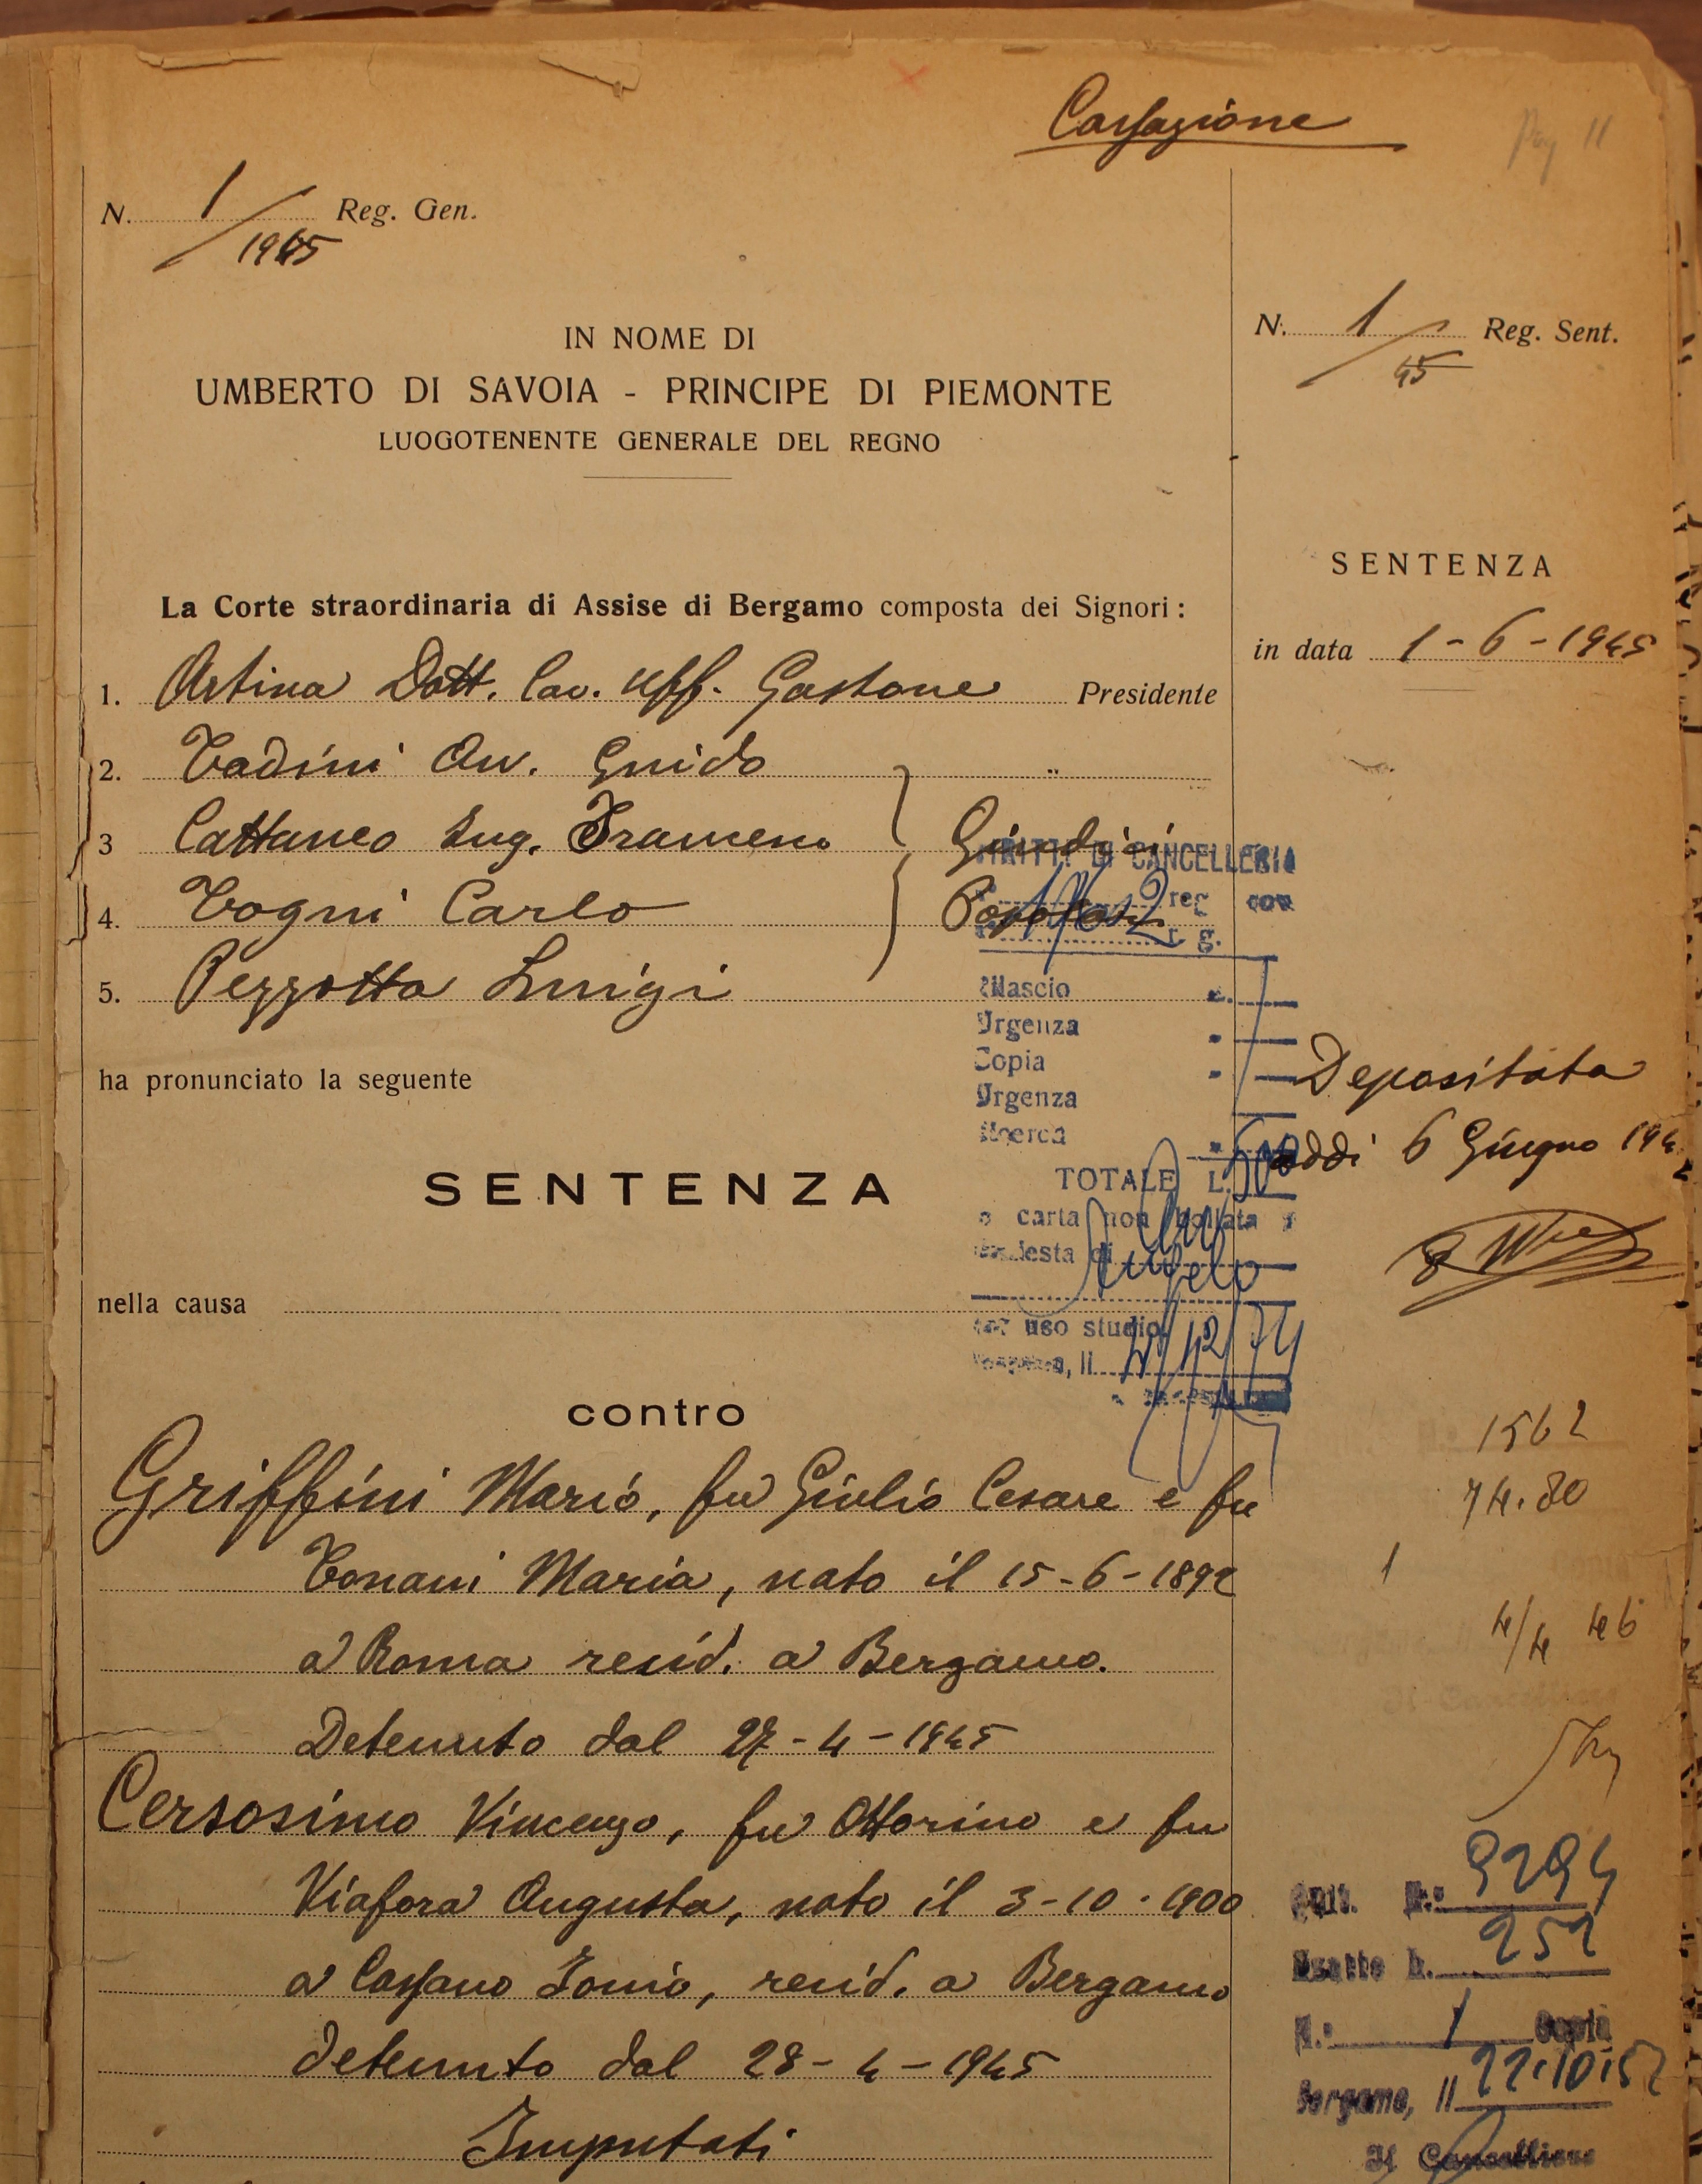 Cassazione
Pag 11
N. 1/1945 Reg. Gen.
IN NOME DI
UMBERTO DI SAVOIA - PRINCIPE DI PIEMONTE
LUOGOTENENTE GENERALE DEL REGNO
N. 1/45 Reg. Sent.
SENTENZA
in data 1-6-1945
La Corte straordinaria di Assise di Bergamo composta dei Signori:
1. Artina Dott. Cav. Uff. Gastone Presidente
2. Tadini Avv. Guido "
3 Cattaneo Ing. Francesco Giudici
4. Togni Carlo Popolari
5. Pezzotta Luigi
ha pronunciato la seguente
SENTENZA
nella causa
contro
Griffini Mario, fu Giulio Cesare e fu
Tonani Maria, nato il 15-6-1892
a Roma resid. a Bergamo.
Detenuto dal 27-4-1945
Cersosimo Vincenzo, fu Ottorino e fu
Viafora Augusta, nato il 3-10-1900
a Cassano Ionio, resid. a Bergamo
detenuto dal 28-4-1945
Imputati
DIRITTI DI CANCELLERIA
reg
r. g.
Rilascio
Urgenza
Copia
Urgenza
Ricerca
TOTALE L. 500
carta non bollata
uso studio
Il 12/74
Depositata
addi 6 Giugno 194
1562
74.80
1
4/4 46
N. 9294
252
N. 1 Copia
Bergamo, Il 22.10.52
Il Cancelliere